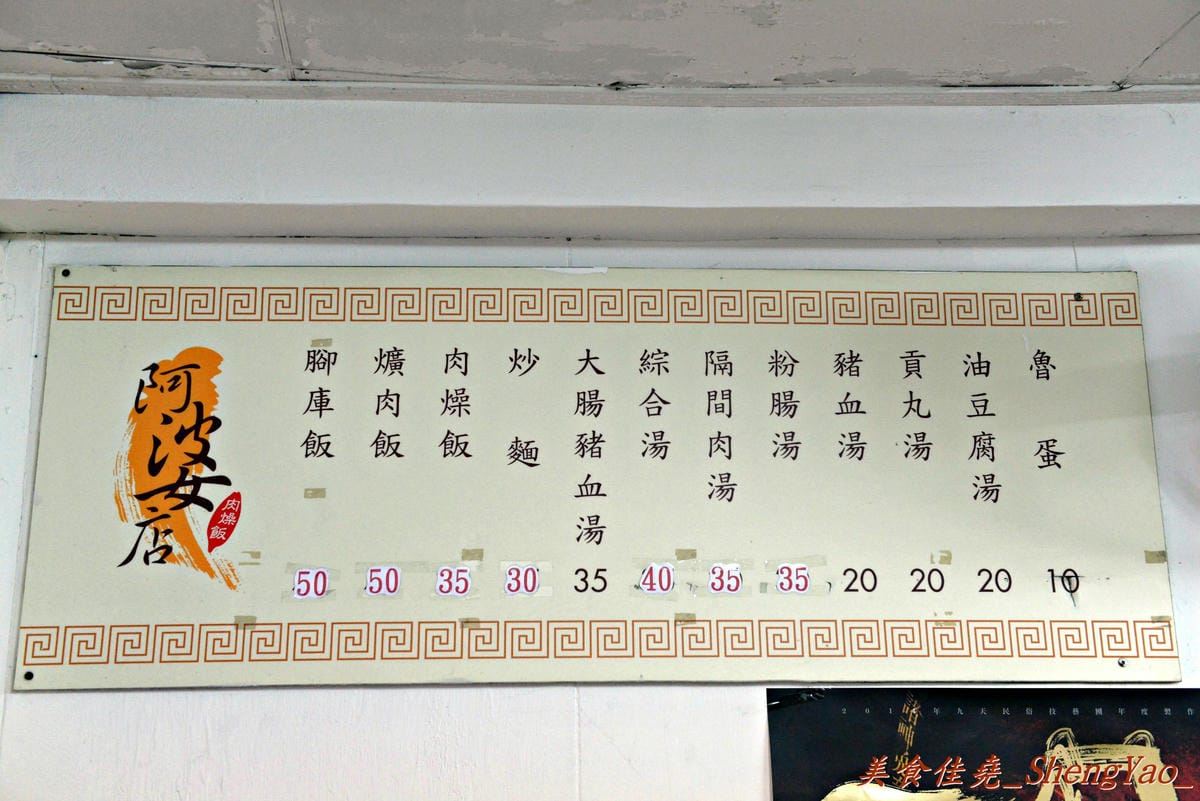 阿波女店
肉燥飯
腳庫飯
50
爌肉飯
50
肉燥飯
35
炒麵
30
大腸豬血湯
35
綜合湯
40
隔間肉湯
35
粉腸湯
35
豬血湯
20
貢丸湯
20
油豆腐湯
20
魯蛋
10
年九天民俗技藝團年度製作
美食佳堯_ShengYao_